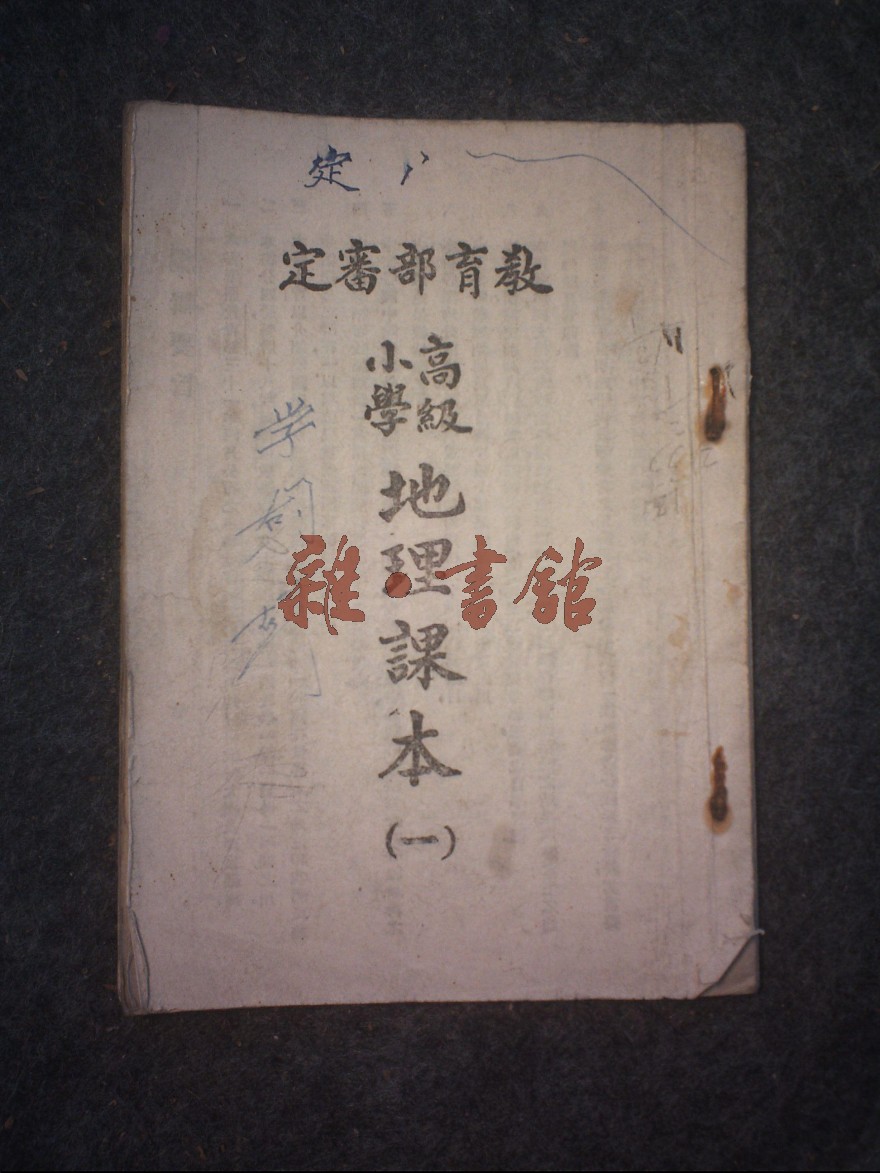 定
教育部審定
高級
小學
地理課本
(一)
学
雜·書館